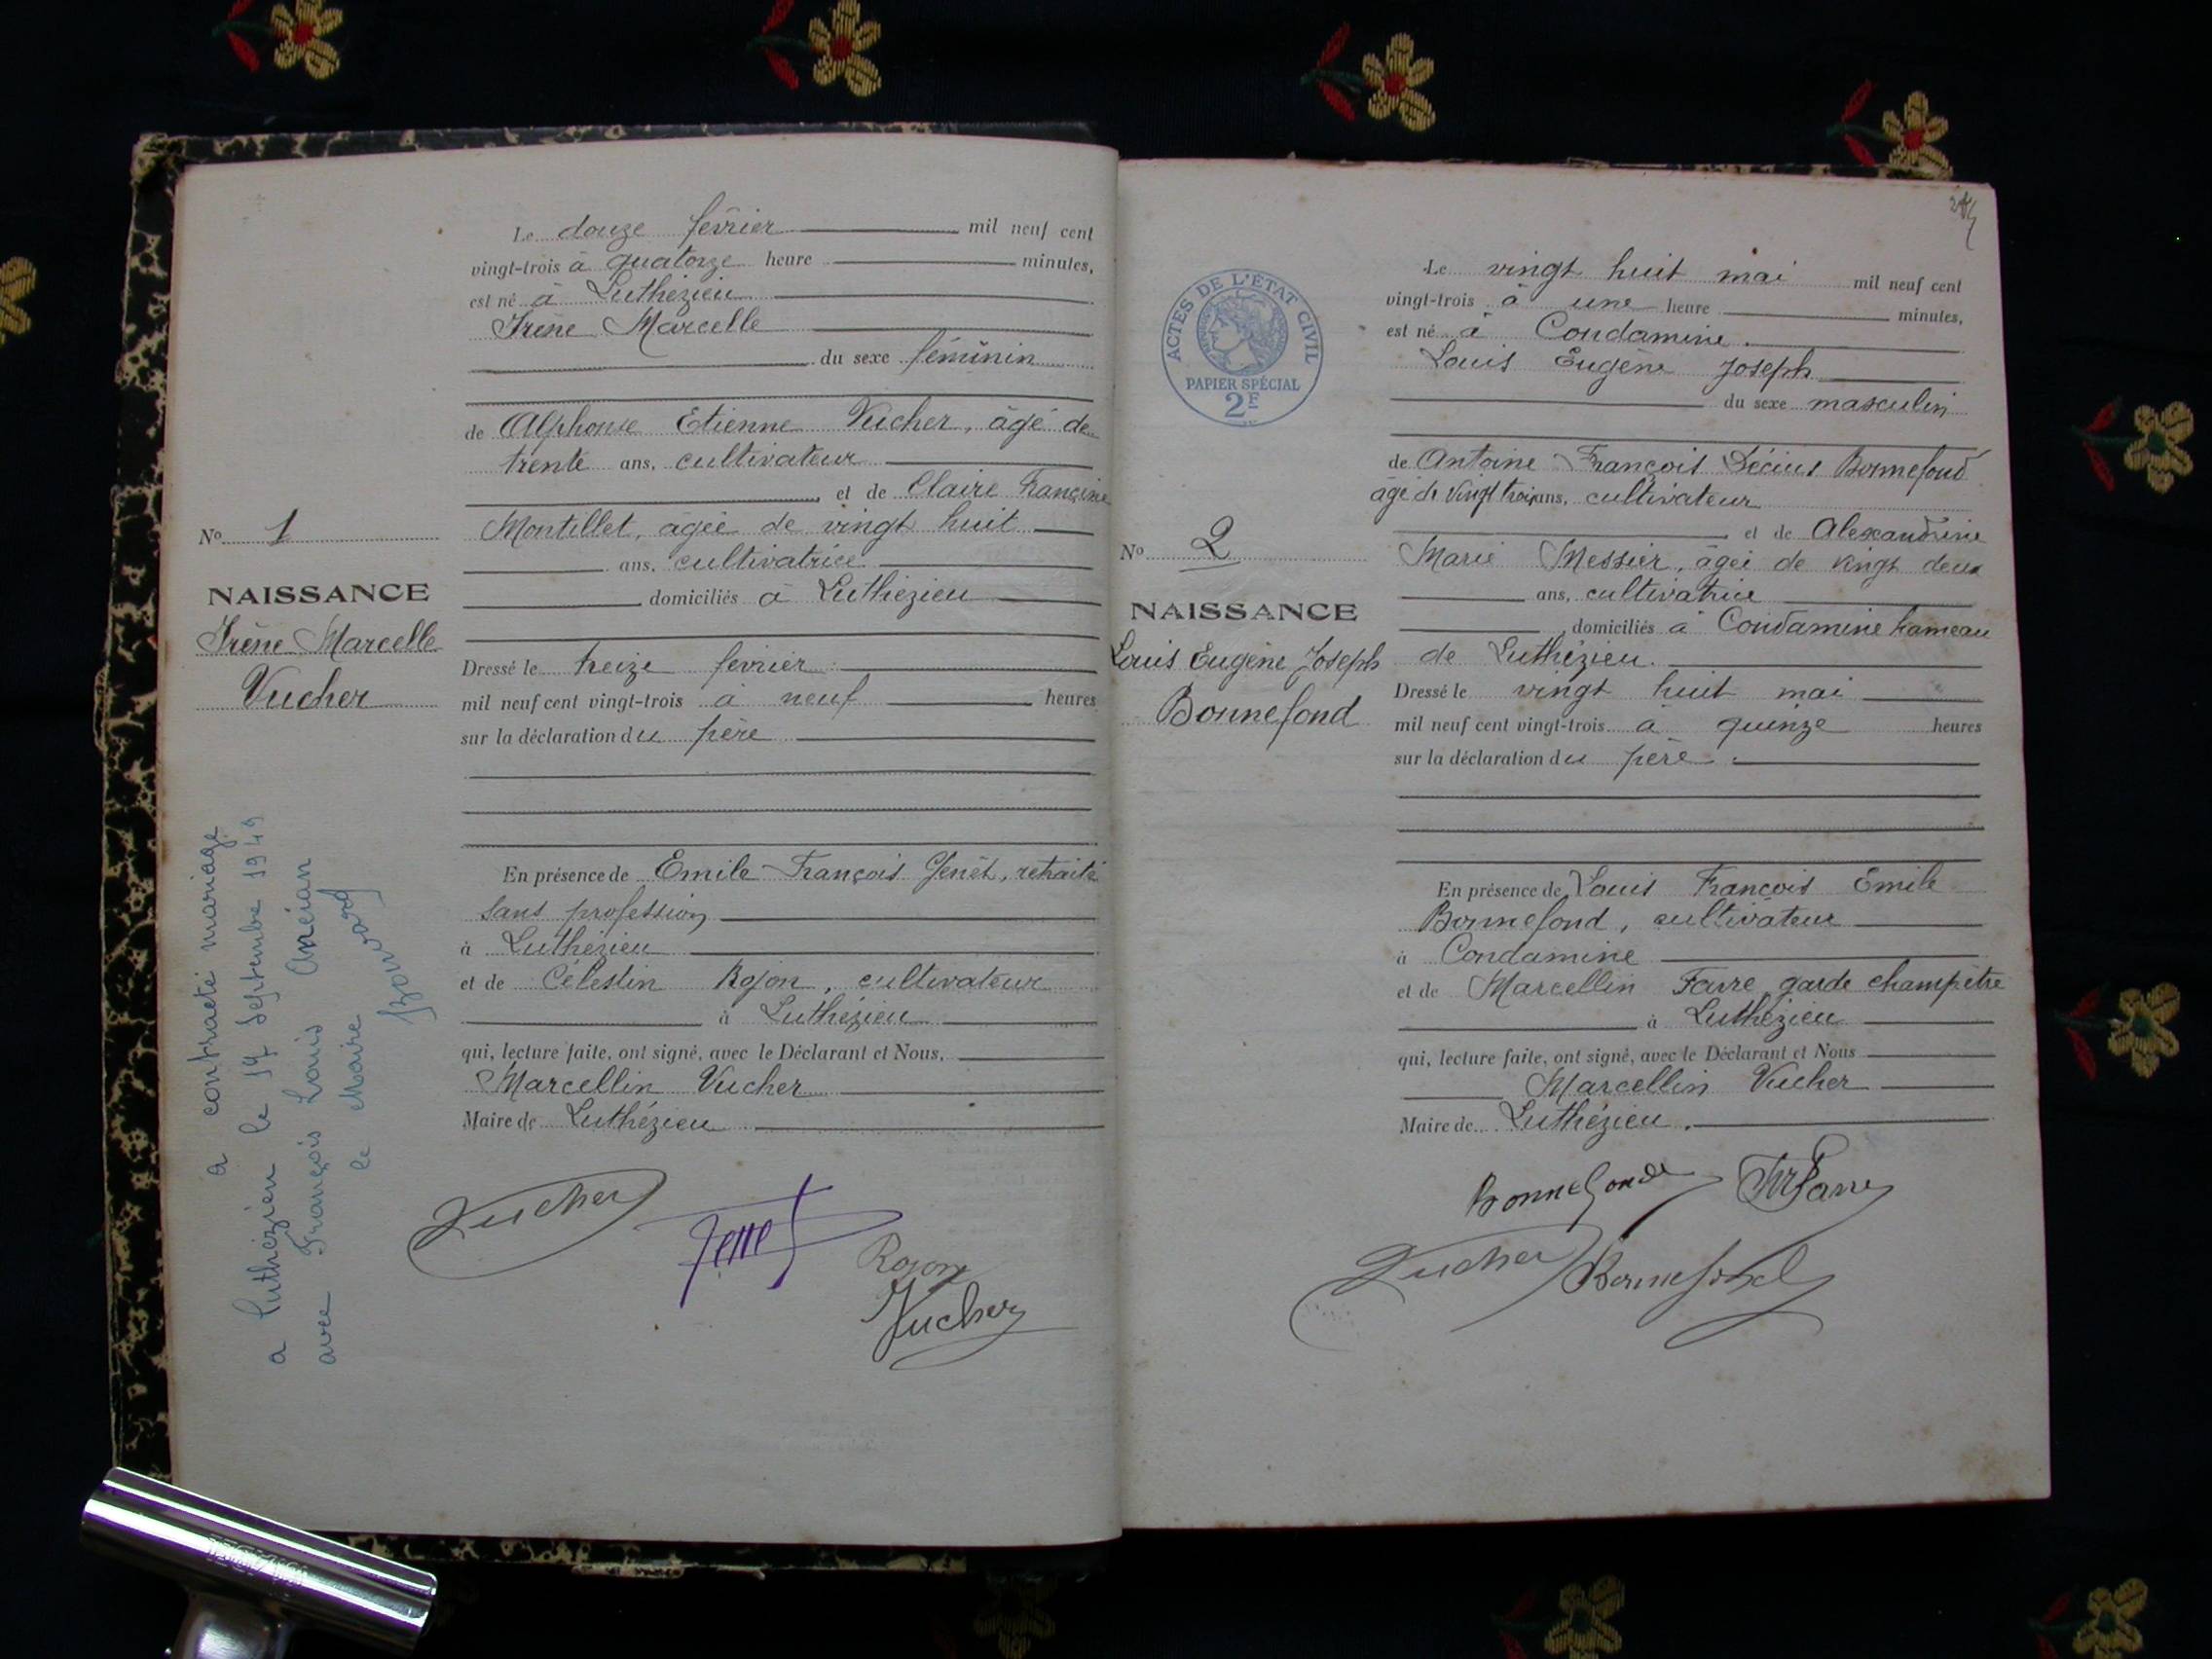 Le douze février mil neuf cent
vingt-trois à quatorze heure minutes,
est né à Luthézieu
Irène Marcelle
du sexe féminin
de Alphonse Etienne Vucher, âgé de
trente ans, cultivateur
et de Claire Françine
Montillet, âgée de vingt huit
ans, cultivatrice
domiciliés à Luthézieu
Dressé le treize février
mil neuf cent vingt-trois à neuf heures
sur la déclaration du père
En présence de Emile François Jenet, retraité
sans profession
à Luthézieu
et de Célestin Rojon, cultivateur
à Luthézieu
qui, lecture faite, ont signé, avec le Déclarant et Nous,
Marcellin Vucher
Maire de Luthézieu
Vucher
Jenet
Rojon
Vucher
No 1
NAISSANCE
Irène Marcelle
Vucher
a contracté mariage
a Luthézieu le 17 Septembre 1949
avec François Louis
le Maire
ACTES DE L'ÉTAT CIVIL
PAPIER SPÉCIAL
2F
No 2
NAISSANCE
Louis Eugène Joseph
Bonnefond
Le vingt huit mai mil neuf cent
vingt-trois à une heure minutes,
est né à Condamine.
Louis Eugène Joseph
du sexe masculin
de Antoine François Décius Bonnefond
âgé de vingt trois ans, cultivateur
et de Alexandrine
Marie Messier, âgée de vingt deux
ans, cultivatrice
domiciliés à Condamine hameau
de Luthézieu.
Dressé le vingt huit mai
mil neuf cent vingt-trois à quinze heures
sur la déclaration du père.
En présence de Louis François Emile
Bonnefond, cultivateur
à Condamine
et de Marcellin Favre garde champêtre
à Luthézieu
qui, lecture faite, ont signé, avec le Déclarant et Nous
Marcellin Vucher
Maire de Luthézieu.
Bonnefond
Favre
Vucher
Bonnefond